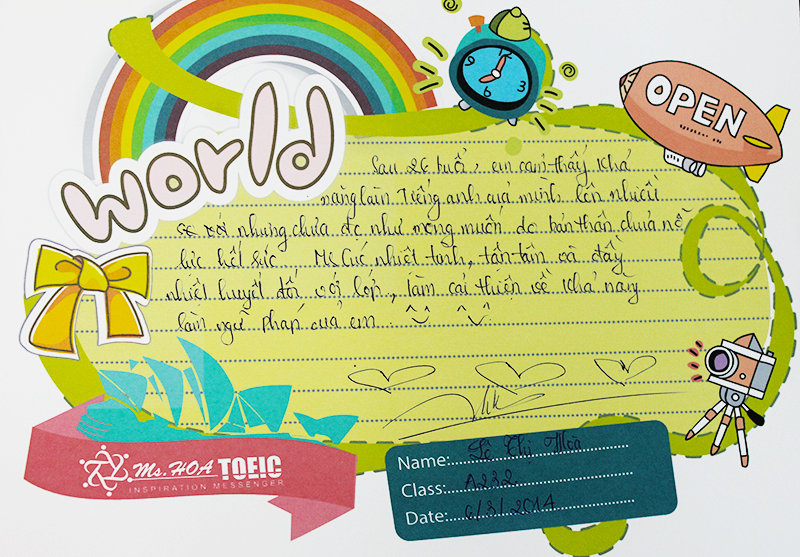 world
OPEN
Sau 26 buổi, em cảm thấy khả
năng làm Tiếng anh của mình lên nhiều
so với nhưng chưa đc như mong muốn do bản thân chưa nỗ
lực hết sức. Ms Cúc nhiệt tình, tận tâm và đầy
nhiệt huyết đối với lớp, làm cải thiện về khả năng
làm ngữ pháp của em
9 6 3
Ms. HOA TOEIC
INSPIRATION MESSENGER
Name: Thị
Class: A232
Date: 6/3/2014